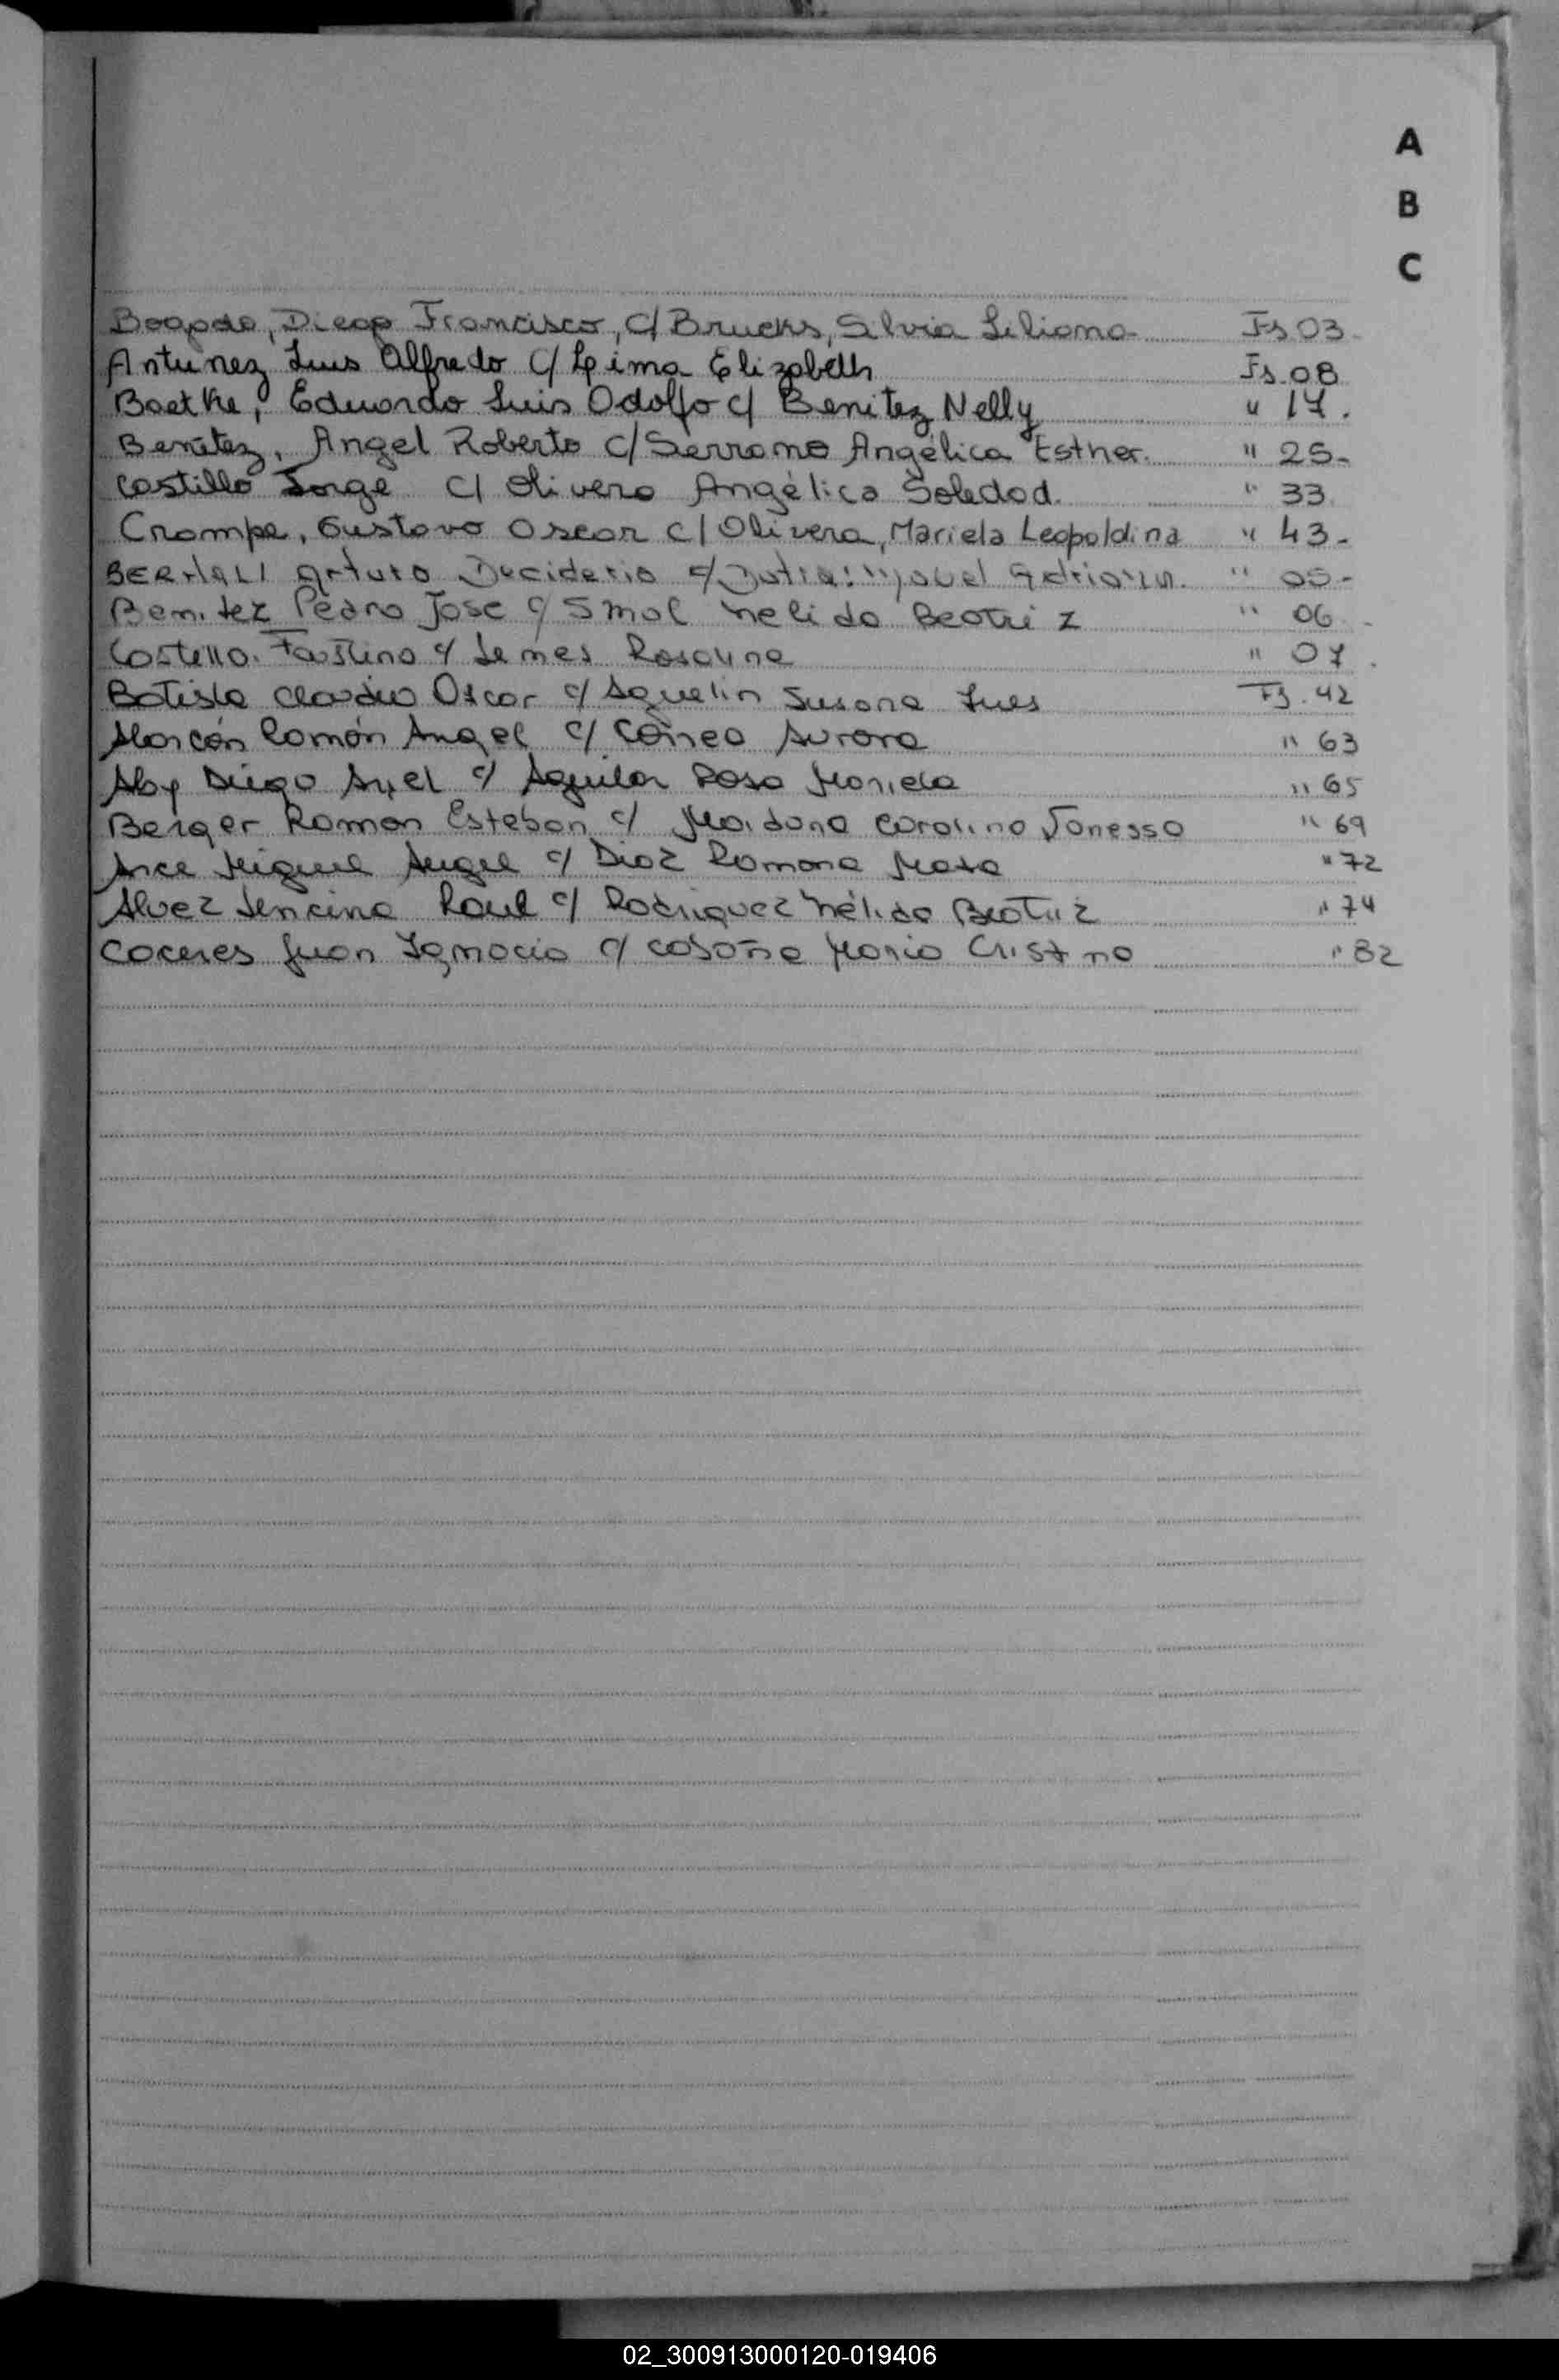 A
B
C
Bogado, Diego Francisco, c/ Brucks, Silvia Liliana Fs 03.
Antunez Luis Alfredo c/ Leima Elizabeth Fs. 08
Baethe, Eduardo Luis Odolfo c/ Benitez Nelly " 17.
Benitez, Angel Roberto c/ Serrano Angélica Esther. " 25-
Castillo Jorge c/ Olivera Angélica Soledad. " 33
Crampe, Gustavo Oscar c/ Olivera, Mariela Leopoldina " 43-
Arturo Deciderio c/ Adriana. " 05-
Benitez Pedro José c/ Smol Nelida Beatriz " 06
Costello. Faustino c/ Lemes Rosalina " 07.
Batista Claudio Oscar c/ Aquelin Susana Ines Fs. 42
Alarcón Ramón Angel c/ Correa Aurora " 63
Alby Diego Axel c/ Aguilar Rosa Mariela " 65
Berger Ramon Esteban c/ Maidana Carolina Vanessa " 69
Arce Miguel Angel c/ Diaz Ramona " 72
Alvez Lencina Raul c/ Rodriguez Nélida Beatriz " 74
Caceres Juan Ignacio c/ Casaña Maria Cristina " 82
02_300913000120-019406